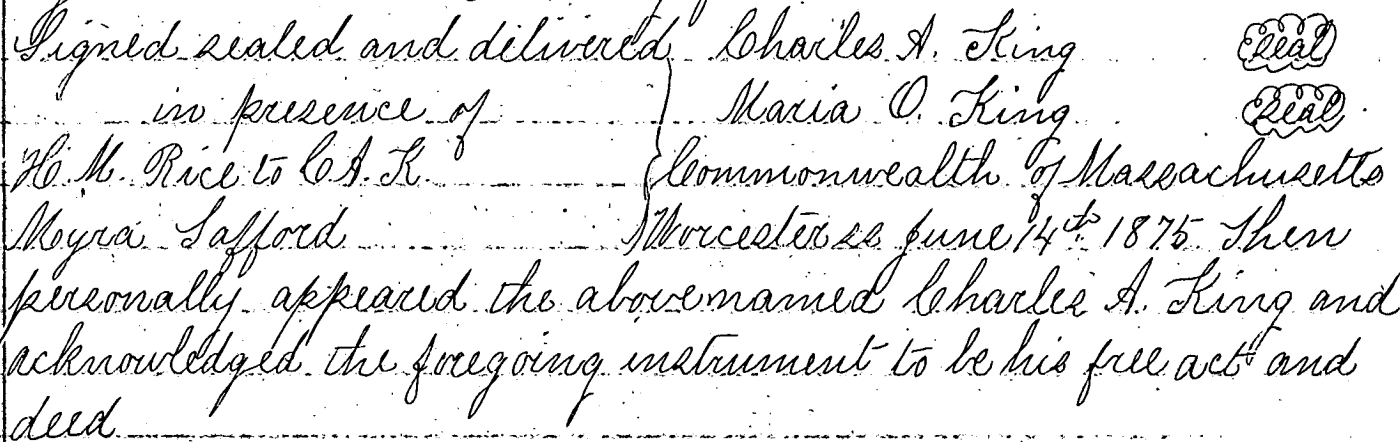 Signed sealed and delivered Charles A. King Seal
in presence of Maria O. King Seal
H. M. Rice to C A. K. Commonwealth of Massachusetts
Myra Safford Worcester ss June 14th 1875. Then
personally appeared the abovenamed Charles A. King and
acknowledged the foregoing instrument to be his free act and
deed